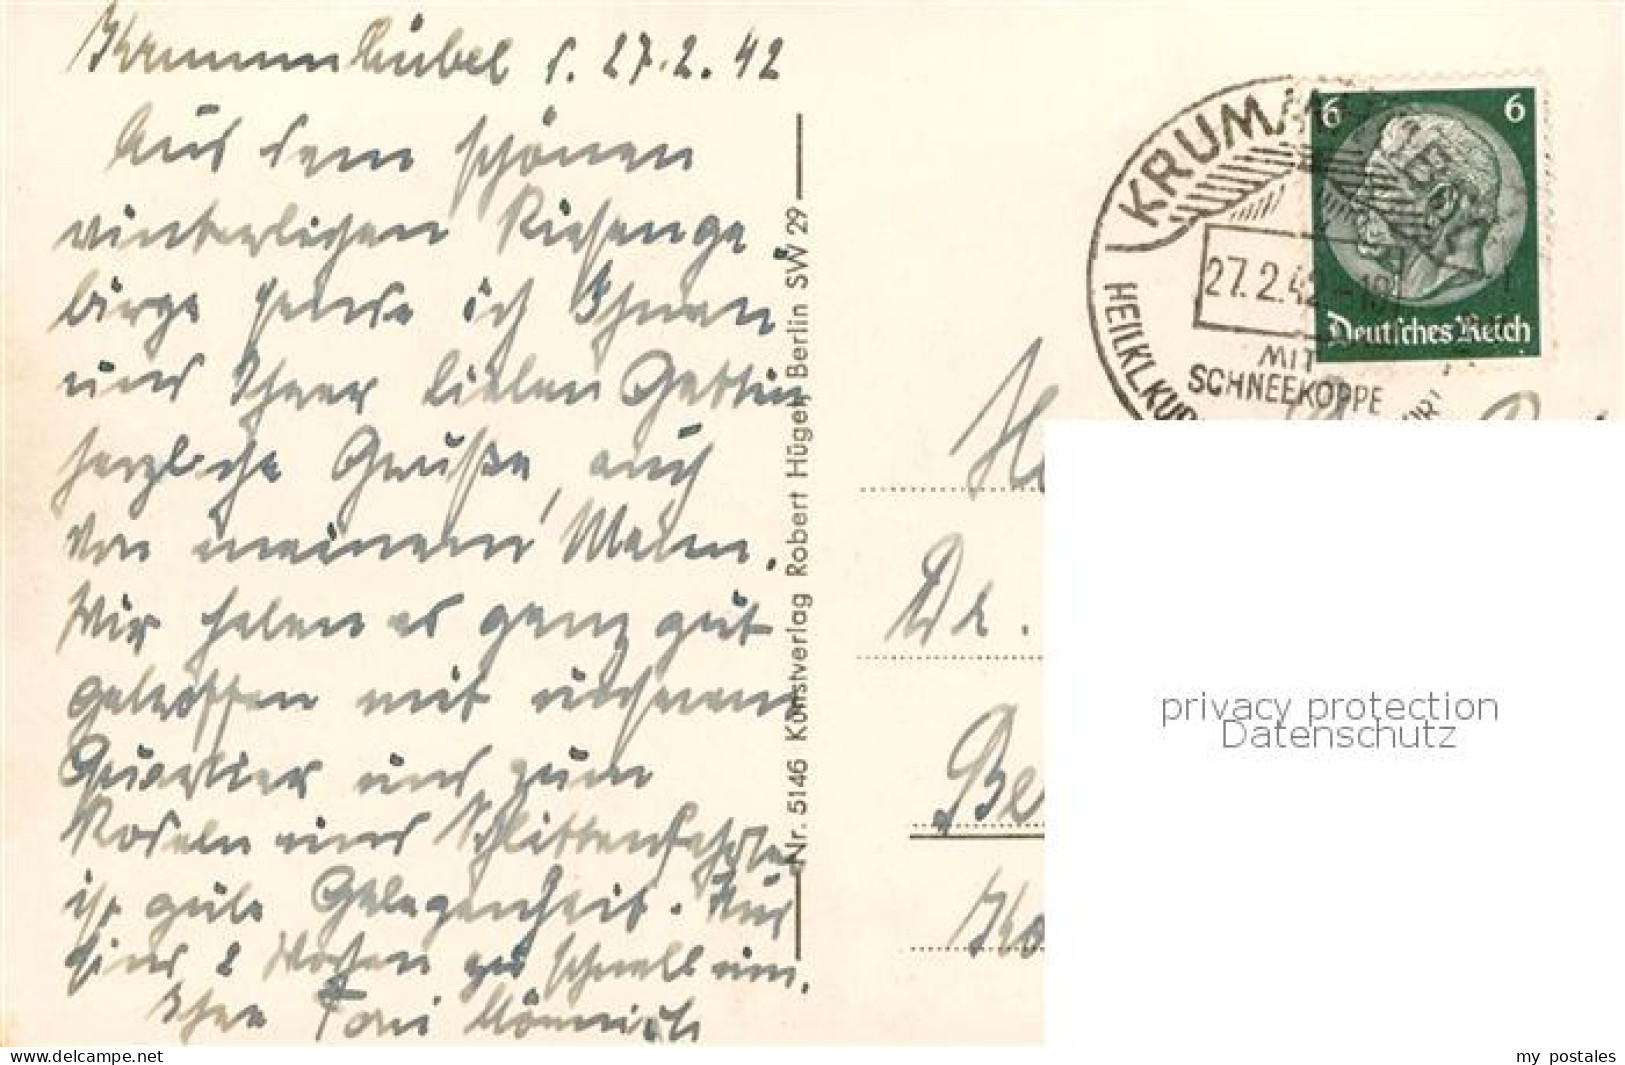 Krummhübel d. 27.2.42
Aus dem schönen
winterlichen Riesenge
birge sende ich Ihnen
und Ihrer lieben Gattin
herzliche Grüße, auch
von meinem Mann.
Wir haben es ganz gut
getroffen mit unserem
Quartier und zum
Rodeln und Schlittenfahren
ist gute Gelegenheit. Nur
sind 2 Wochen zu schnell um.
Ihre Toni
Nr. 5146 Kunstverlag Robert Hüger, Berlin SW 29
KRUMMHÜBEL
27.2.42.-18
MIT
SCHNEEKOPPE
HEILKL.KU
6 6
Deutsches Reich
Dr.
Be
privacy protection
Datenschutz
www.delcampe.net
my_postales